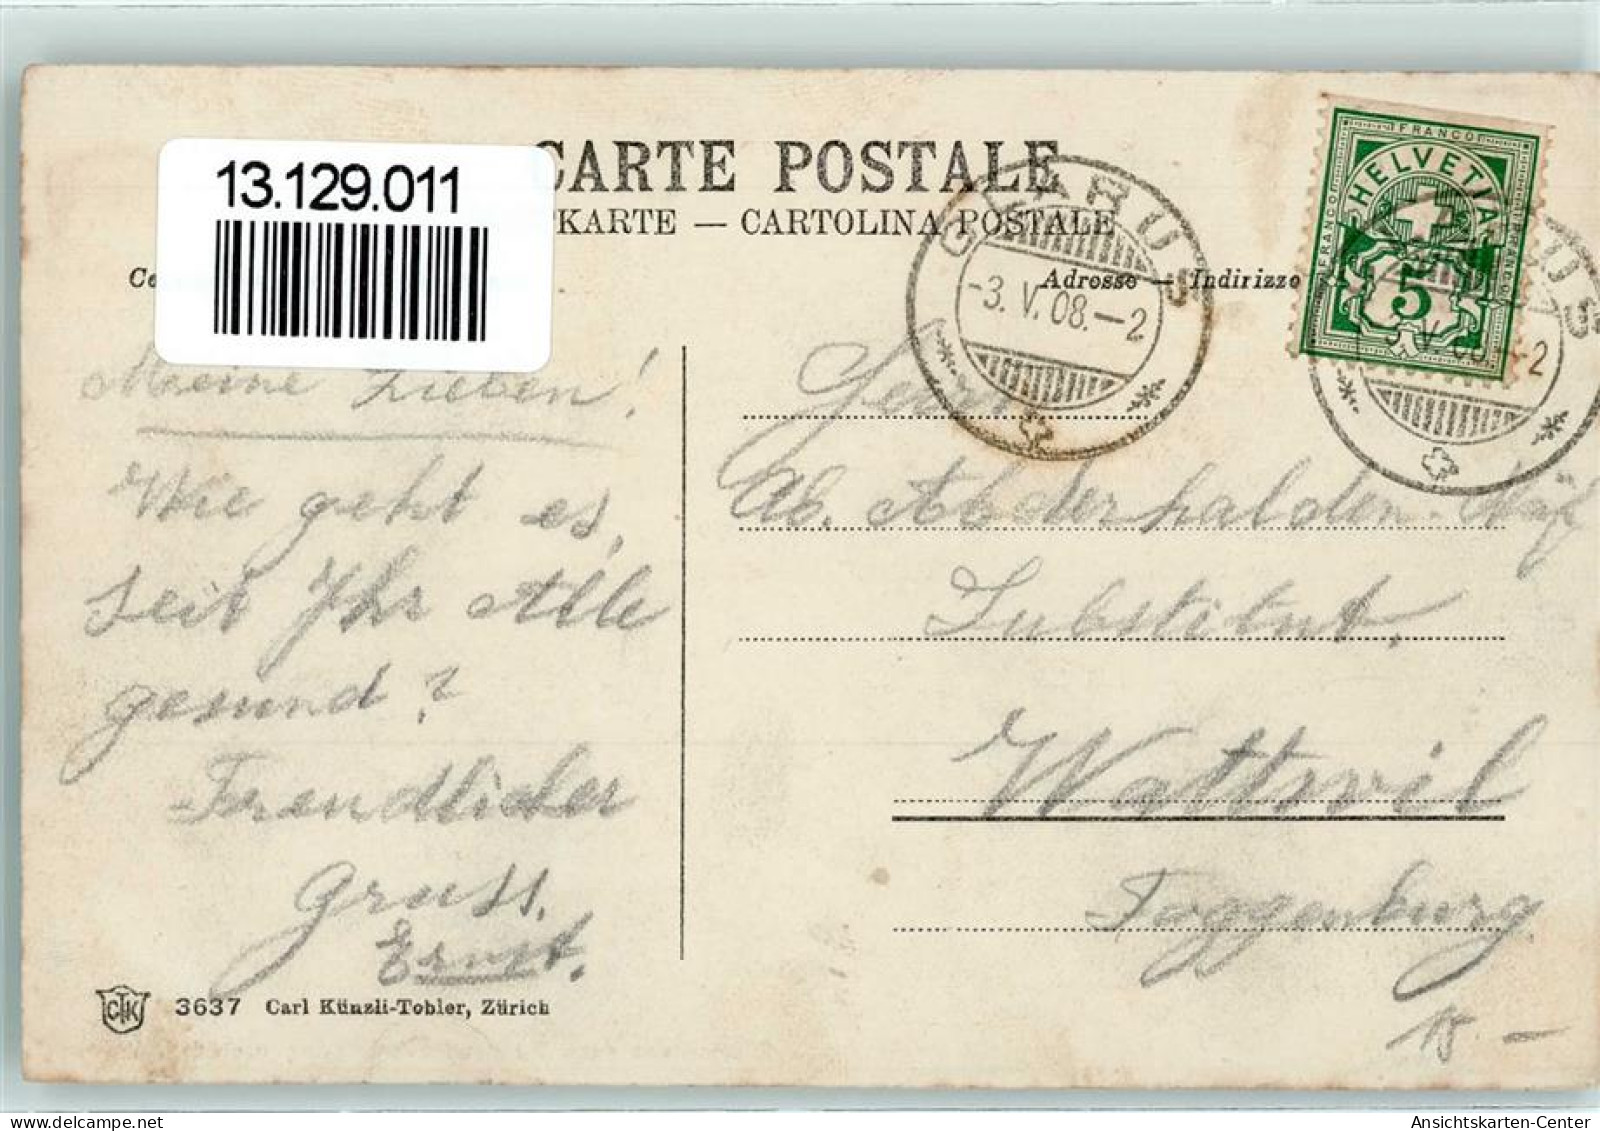 13.129.011
CARTE POSTALE
KARTE — CARTOLINA POSTALE
Adresse — Indirizzo
GLARUS
-3. V. 08.—2
FRANCO
FRANCO
HELVETIA
FRANCO
5
-2
Meine Lieben!
Wie geht es,
seit Ihr Alle
gesund?
Freundlicher
Gruss.
Ernst.
Ab. Abderhalden-Näf
Substitut.
Wattwil
Toggenburg
15.–
CTK 3637 Carl Künzli-Tobler, Zürich
delcampe.net
Ansichtskarten-Center